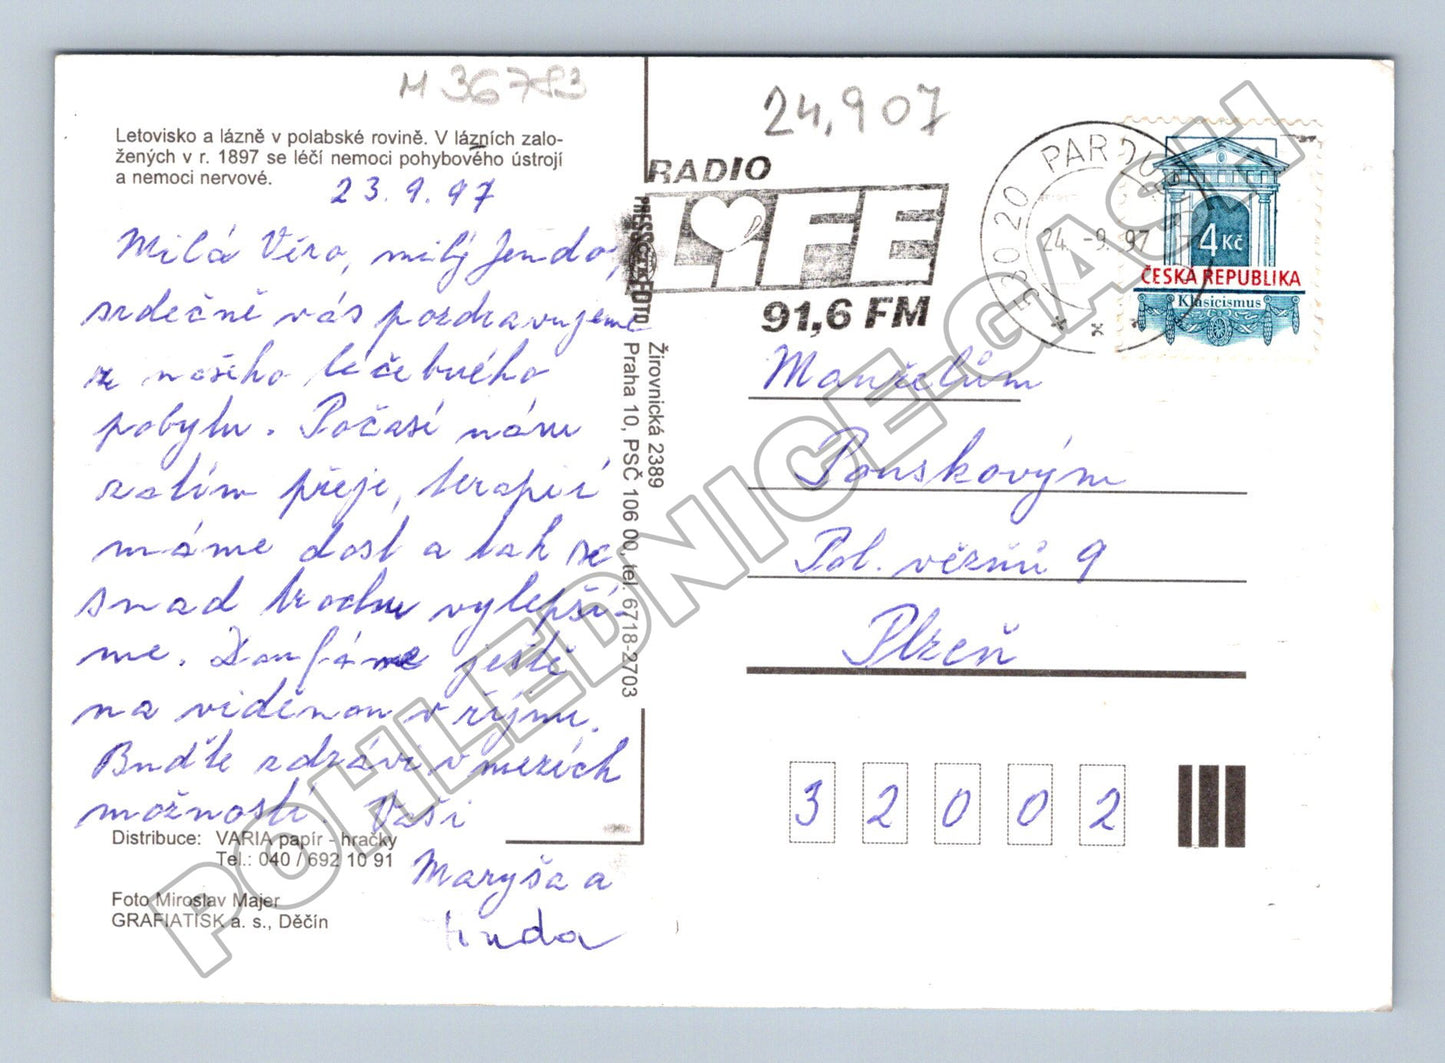 M 36783
Letovisko a lázně v polabské rovině. V lázních zalo-
žených v r. 1897 se léčí nemoci pohybového ústrojí
a nemoci nervové.
23.9.97
Milá Věro, milý Jendo,
srdečně vás pozdravujeme
z našeho léčebného
pobytu. Počasí nám
zatím přeje, terapií
máme dost a tak se
snad trochu vylepší-
me. Doufáme ještě
na viděnou v říjnu.
Buďte zdrávi v mezích
možností. Vaši
Maryša a
Distribuce: VARIA papír - hračky
Tel.: 040 / 692 10 91
Foto Miroslav Majer
GRAFIATISK a. s., Děčín
PRESSFOTO
Žirovnická 2389
Praha 10, PSČ 106 00, tel. 6718-2703
24,907
RADIO
LIFE
91,6 FM
53020 PARDUBI
24.-9.97
4 Kč
ČESKÁ REPUBLIKA
Klasicismus
Manželům
Pouskovým
Pol. vězňů 9
Plzeň
32002
POHLEDNICE-GASH